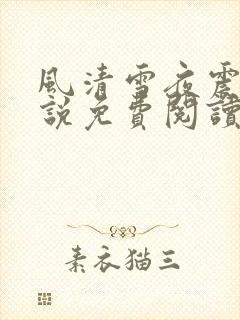 風清雪夜震
說免費閱讀
素衣猫三